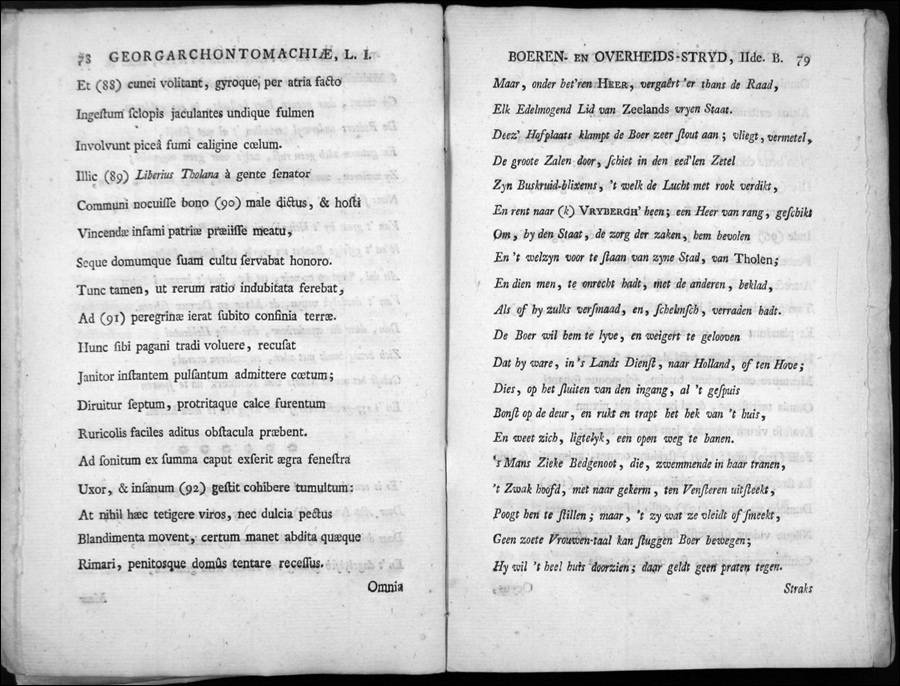 78 GEORGARCHONTOMACHIÆ, L. I.
Et (88) cunei volitant, gyroque, per atria facto
Ingeſtum ſclopis jaculantes undique fulmen
Involvunt piceâ fumi caligine cœlum.
Illic (89) Liberius Tholana à gente ſenator
Communi nocuiſſe bono (90) male dictus, & hoſti
Vincendæ inſami patriæ præiiſſe meatu,
Seque domumque ſuam cultu ſervabat honoro.
Tunc tamen, ut rerum ratio indubitata ferebat,
Ad (91) peregrinæ ierat ſubito confinia terræ.
Hunc ſibi pagani tradi voluere, recuſat
Janitor inſtantem pulſantum admittere cœtum;
Diruitur ſeptum, protritaque calce furentum
Ruricolis faciles aditus obſtacula præbent.
Ad ſonitum ex ſumma caput exſerit ægra feneſtra
Uxor, & inſanum (92) geſtit cohibere tumultum:
At nihil hæc tetigere viros, nec dulcia pectus
Blandimenta movent, certum manet abdita quæque
Rimari, penitosque domûs tentare receſſus.
Omnia
BOEREN- EN OVERHEIDS-STRYD, IIde. B. 79
Maar, onder het'ren HEER, vergaêrt 'er thans de Raad,
Elk Edelmogend Lid van Zeelands vryen Staat.
Deez' Hofplaats klampt de Boer zeer ſtout aan; vliegt, vermetel,
De groote Zalen door, ſchiet in den eed'len Zetel
Zyn Buskruid-blixems, 't welk de Lucht met rook verdikt,
En rent naar (k) VRYBERGH' heen; een Heer van rang, geſchikt
Om, by den Staat, de zorg der zaken, hem bevolen
En 't welzyn voor te ſtaan van zyne Stad, van Tholen;
En dien men, te onrecht hadt, met de anderen, beklad,
Als of hy zulks verſmaad, en, ſchelmſch, verraden hadt.
De Boer wil hem te lyve, en weigert te gelooven
Dat hy ware, in 's Lands Dienſt, naar Holland, of ten Hove;
Dies, op het ſluiten van den ingang, al 't geſpuis
Bonſt op de deur, en rukt en trapt het hek van 't huis,
En weet zich, ligtelyk, een open weg te banen.
's Mans Zieke Bedgenoot, die, zwemmende in haar tranen,
't Zwak hoofd, met naar gekerm, ten Venſteren uitſteekt,
Poogt hen te ſtillen; maar, 't zy wat ze vleidt of ſmeekt,
Geen zoete Vrouwen-taal kan ſtuggen Boer bewegen;
Hy wil 't heel huis doorzien; daar geldt geen praten tegen.
Straks